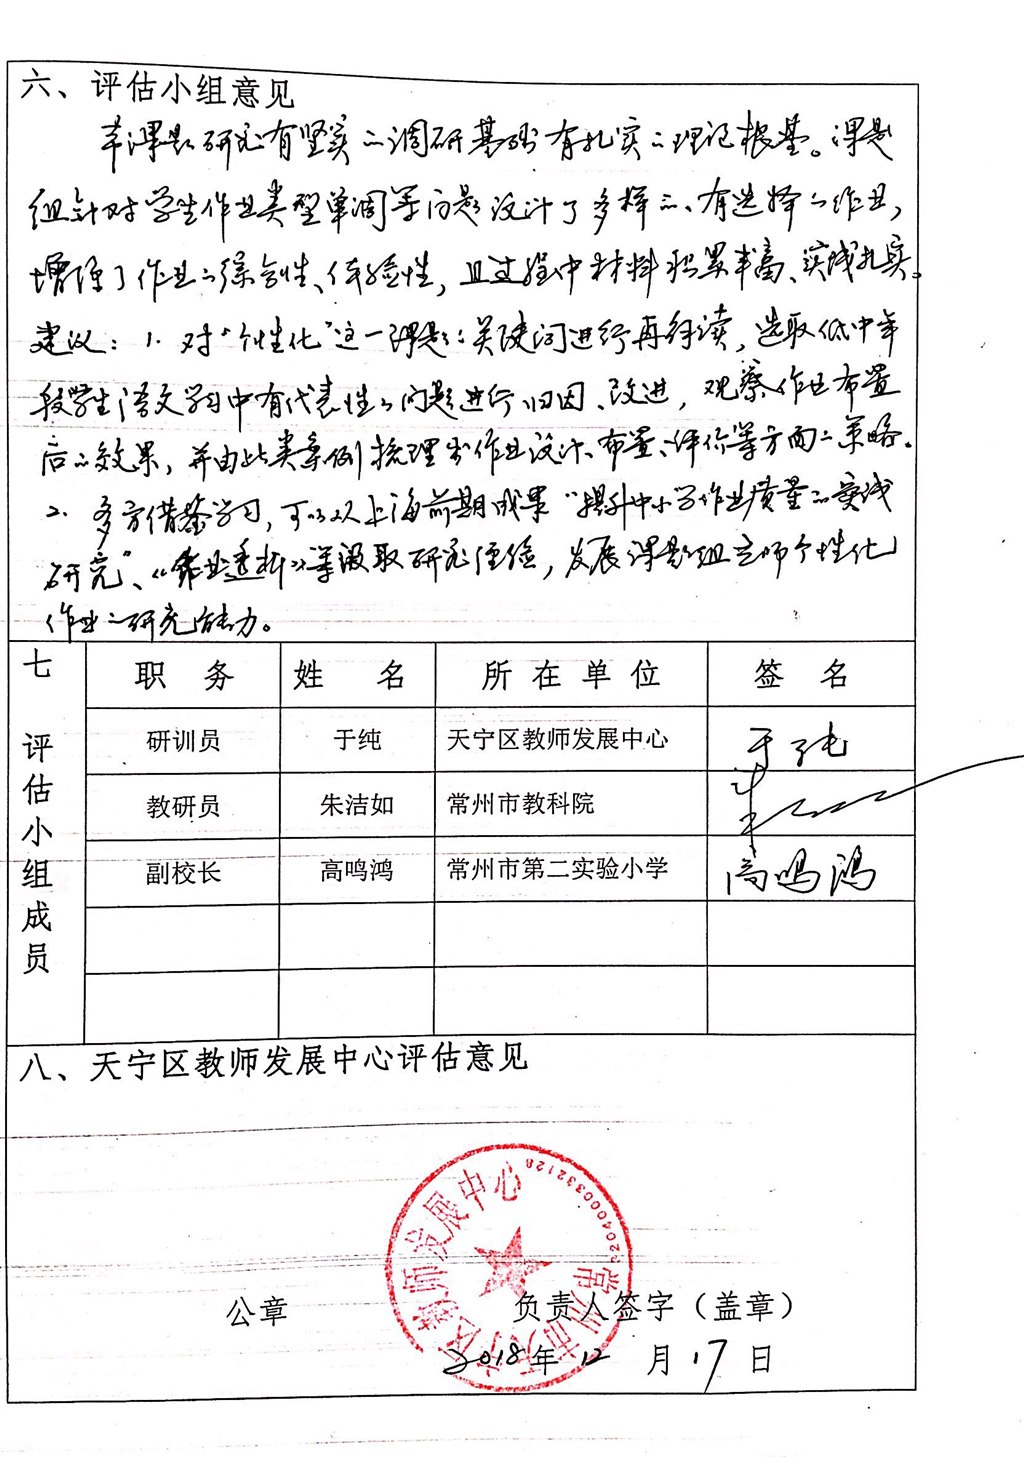 六、评估小组意见
本课题研究有坚实的调研基础,有扎实的理论根基。课题
组针对学生作业类型单调等问题设计了多样的、有选择的作业,
增强了作业的综合性、体验性,且过程中材料积累丰富、实践扎实。
建议:1. 对“个性化”这一课题的关键词进行再解读,选取低中年
段学生语文学习中有代表性的问题进行归因、改进,观察作业布置
后的效果,并由此类案例梳理出作业设计、布置、评价等方面的策略。
2. 多方借鉴学习,可以从上海前期成果“提升中小学作业质量的实践
研究”、《作业透析》等汲取研究经验,发展课题组老师个性化
作业的研究能力。
七 评估小组成员
职务 姓名 所在单位 签名
研训员 于纯 天宁区教师发展中心 于纯
教研员 朱洁如 常州市教科院
副校长 高鸣鸿 常州市第二实验小学 高鸣鸿
八、天宁区教师发展中心评估意见
常州市天宁区教师发展中心
公章 负责人签字(盖章)
2018年12月17日